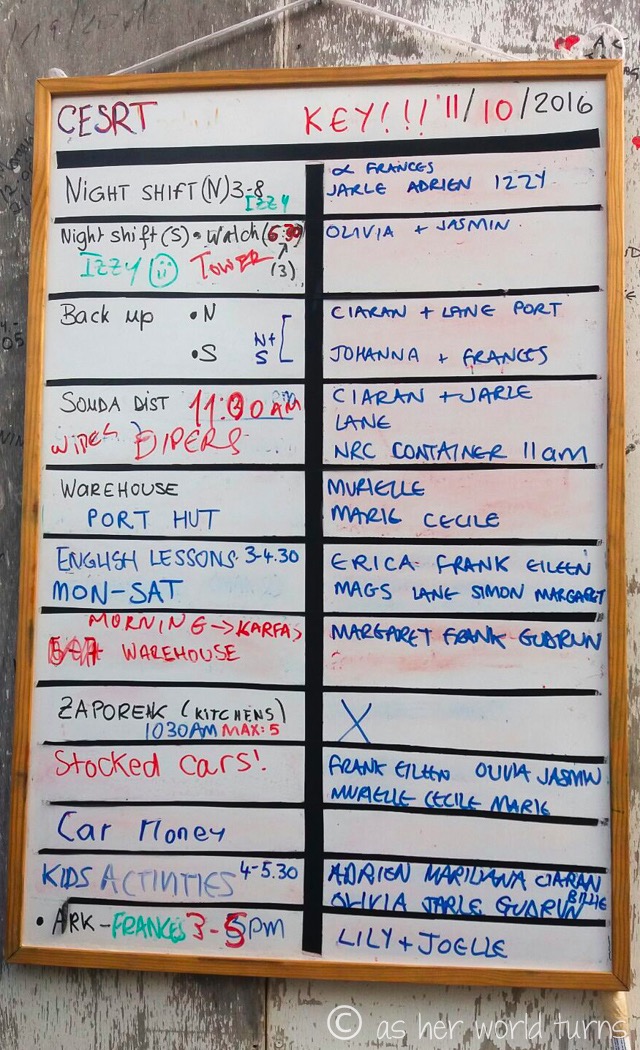 CESRT KEY!!! 11/10/2016
NIGHT SHIFT (N) 3-8 IZZY
& FRANCES
JARLE ADRIEN IZZY
Night shift (S) • Watch (6:30)
IZZY TOWER (3)
OLIVIA + JASMIN
Back up • N
• S N+
S
CIARAN + LANE PORT
JOHANNA + FRANCES
SOUDA DIST 11:00 AM
WIPES DIPERS
CIARAN + JARLE
LANE
NRC CONTAINER 11am
WAREHOUSE
PORT HUT
MURIELLE
MARIE CECILE
ENGLISH LESSONS 3-4.30
MON-SAT
ERICA FRANK EILEEN
MAGS LANE SIMON MARGARET
MORNING → KARFAS
WAREHOUSE
MARGARET FRANK GUDRUN
ZAPOREAK (KITCHENS)
1030AM MAX:5
X
Stocked cars!
FRANK EILEEN OLIVIA JASMIN
MURIELLE CECILE MARIE
Car Money
KIDS ACTIVITIES 4-5.30
ADRIEN MARIDANA CIARAN
OLIVIA JARLE GUDRUN BILLIE
• ARK - FRANCES 3-5pm
LILY + JOELLE
© as her world turns